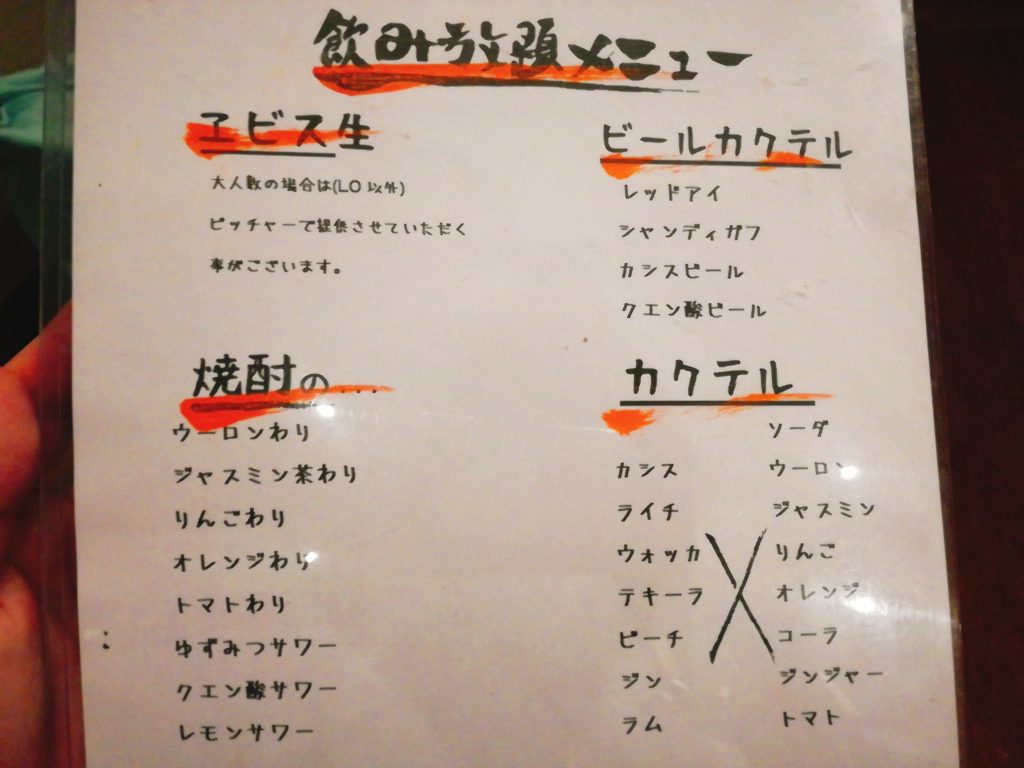 飲み放題メニュー
ヱビス生
大人数の場合は(LO以外)
ピッチャーで提供させていただく
事がございます。
ビールカクテル
レッドアイ
シャンディガフ
カシスビール
クエン酸ビール
焼酎の…
ウーロンわり
ジャスミン茶わり
りんごわり
オレンジわり
トマトわり
ゆずみつサワー
クエン酸サワー
レモンサワー
カクテル
カシス
ライチ
ウォッカ
テキーラ
ピーチ
ジン
ラム
X
ソーダ
ウーロン
ジャスミン
りんご
オレンジ
コーラ
ジンジャー
トマト